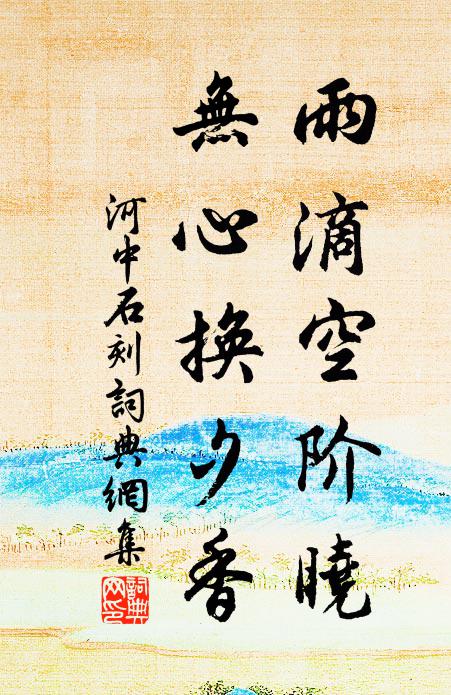 雨滴空阶曉
無心換夕香
河中石刻詞典網集